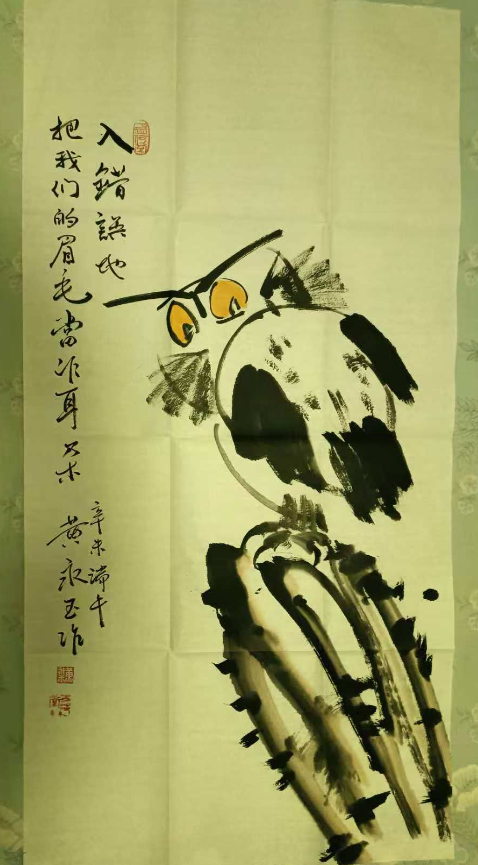 人錯誤地
把我们的眉毛當作耳朵
辛未端午
黄永玉作